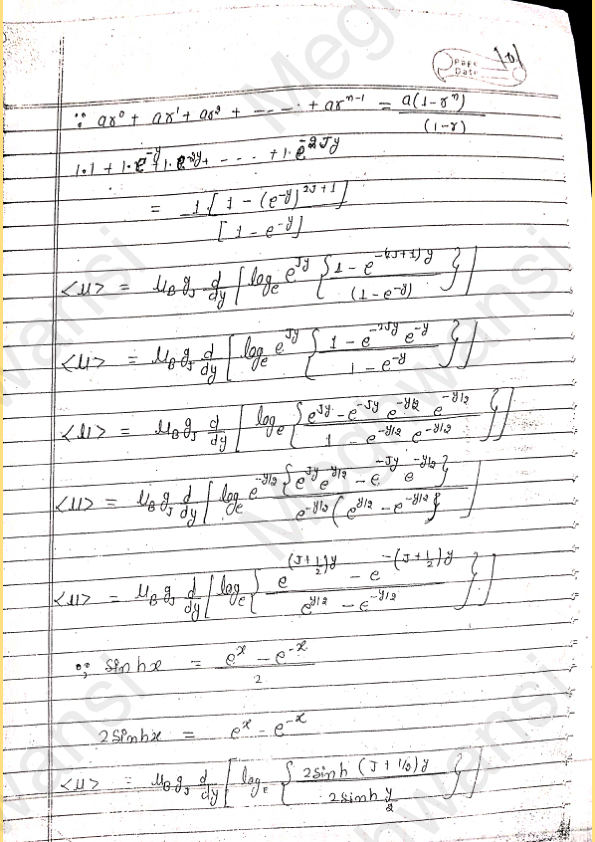 Page
Date
∵ ar⁰ + ar¹ + ar² + ----- + arⁿ⁻¹ = a(1-rⁿ) / (1-r)
1.1 + 1.e^{-y} + 1.e^{-2y} + --- + 1.e^{-2Jy}
= 1.[1 - (e^{-y})^{2J+1}] / [1 - e^{-y}]
<μ> = μ_B g_J d/dy [log_e e^{Jy} {1 - e^{-(2J+1)y} / (1 - e^{-y})}]
<μ> = μ_B g_J d/dy [log_e e^{Jy} {1 - e^{-2Jy} e^{-y} / 1 - e^{-y}}]
<μ> = μ_B g_J d/dy [log_e {e^{Jy} - e^{-Jy} e^{-y/2} e^{-y/2} / 1 - e^{-y/2} e^{-y/2}}]
<μ> = μ_B g_J d/dy [log_e e^{-y/2} {e^{Jy} e^{y/2} - e^{-Jy} e^{-y/2}} / e^{-y/2} (e^{y/2} - e^{-y/2}}]
<μ> = μ_B g_J d/dy [log_e {e^{(J+1/2)y} - e^{-(J+1/2)y} / e^{y/2} - e^{-y/2}}]
∵ sinhx = e^x - e^{-x} / 2
2sinhx = e^x - e^{-x}
<μ> = μ_B g_J d/dy [log_e {2sinh (J + 1/2)y / 2sinh y/2}]